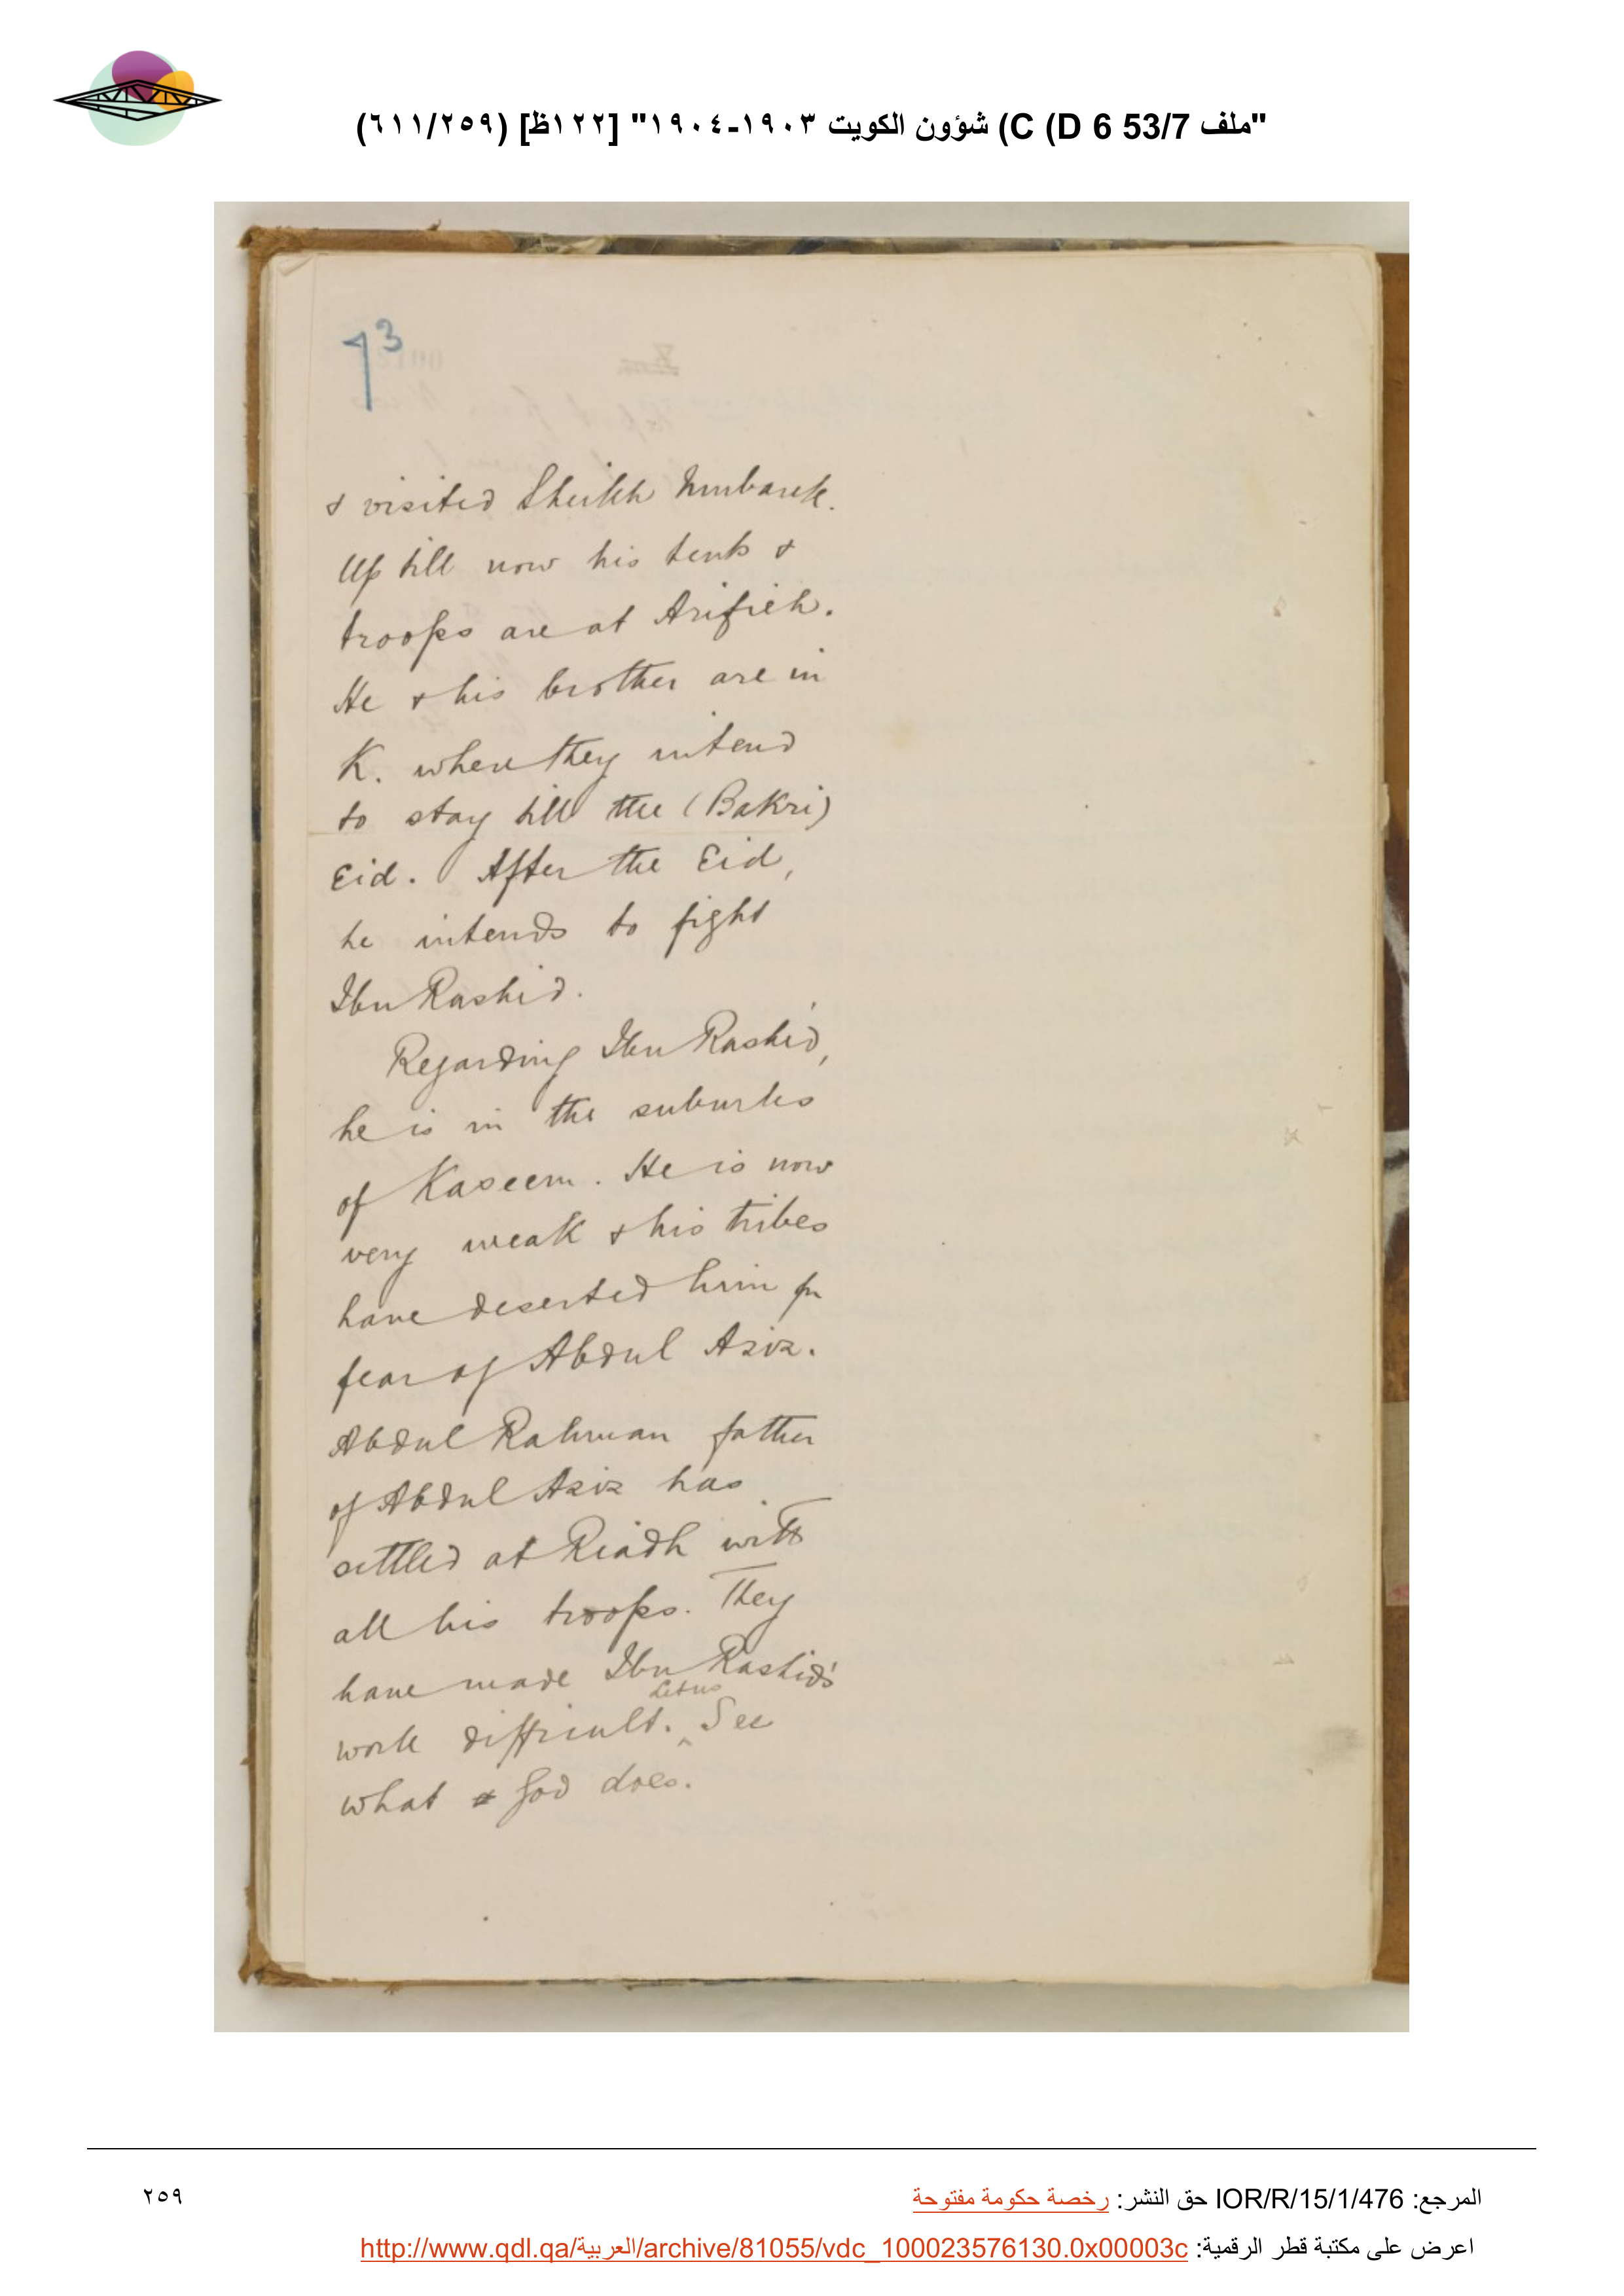 "ملف 53/7 D 6) C) شؤون الكويت ١٩٠٣-١٩٠٤" [١٢٢ظ] (٦١١/٢٥٩)
73
& visited Sheikh Mubarak.
Up till now his tents &
troops are at Arifieh.
He & his brother are in
K. where they intend
to stay till the (Bakri)
Eid. After the Eid,
he intends to fight
Ibn Rashid.
Regarding Ibn Rashid,
he is in the suburbs
of Kaseem. He is now
very weak & his tribes
have deserted him for
fear of Abdul Aziz.
Abdul Rahman father
of Abdul Aziz has
settled at Riadh with
all his troops. They
have made Ibn Rashid's
work difficult. Let us See
what God does.
المرجع: IOR/R/15/1/476 حق النشر: رخصة حكومة مفتوحة
٢٥٩
اعرض على مكتبة قطر الرقمية: http://www.qdl.qa/العربية/archive/81055/vdc_100023576130.0x00003c